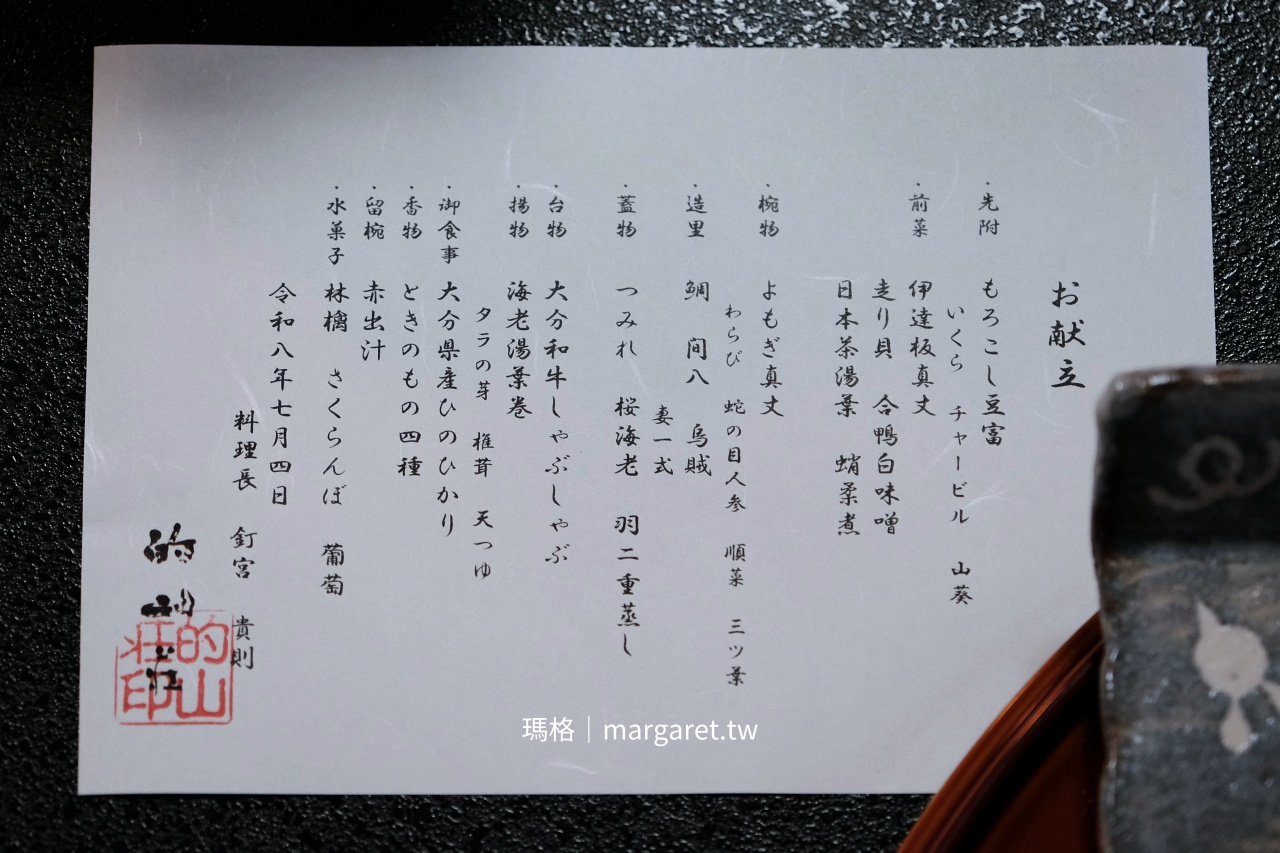 お献立
・先附 もろこし豆富
いくら チャービル 山葵
・前菜 伊達板真丈
走り貝 合鴨白味噌
日本茶湯葉 蛸柔煮
・椀物 よもぎ真丈
わらび 蛇の目人参 順菜 三ツ葉
・造里 鯛 間八 烏賊
妻一式
・蓋物 つみれ 桜海老 羽二重蒸し
・台物 大分和牛しゃぶしゃぶ
・揚物 海老湯葉巻
タラの芽 椎茸 天つゆ
・御食事 大分県産ひのひかり
・香物 ときのもの四種
・留椀 赤出汁
・水菓子 林檎 さくらんぼ 葡萄
令和八年七月四日
料理長 釘宮 貴則
的山荘
的山荘印
瑪格｜margaret.tw